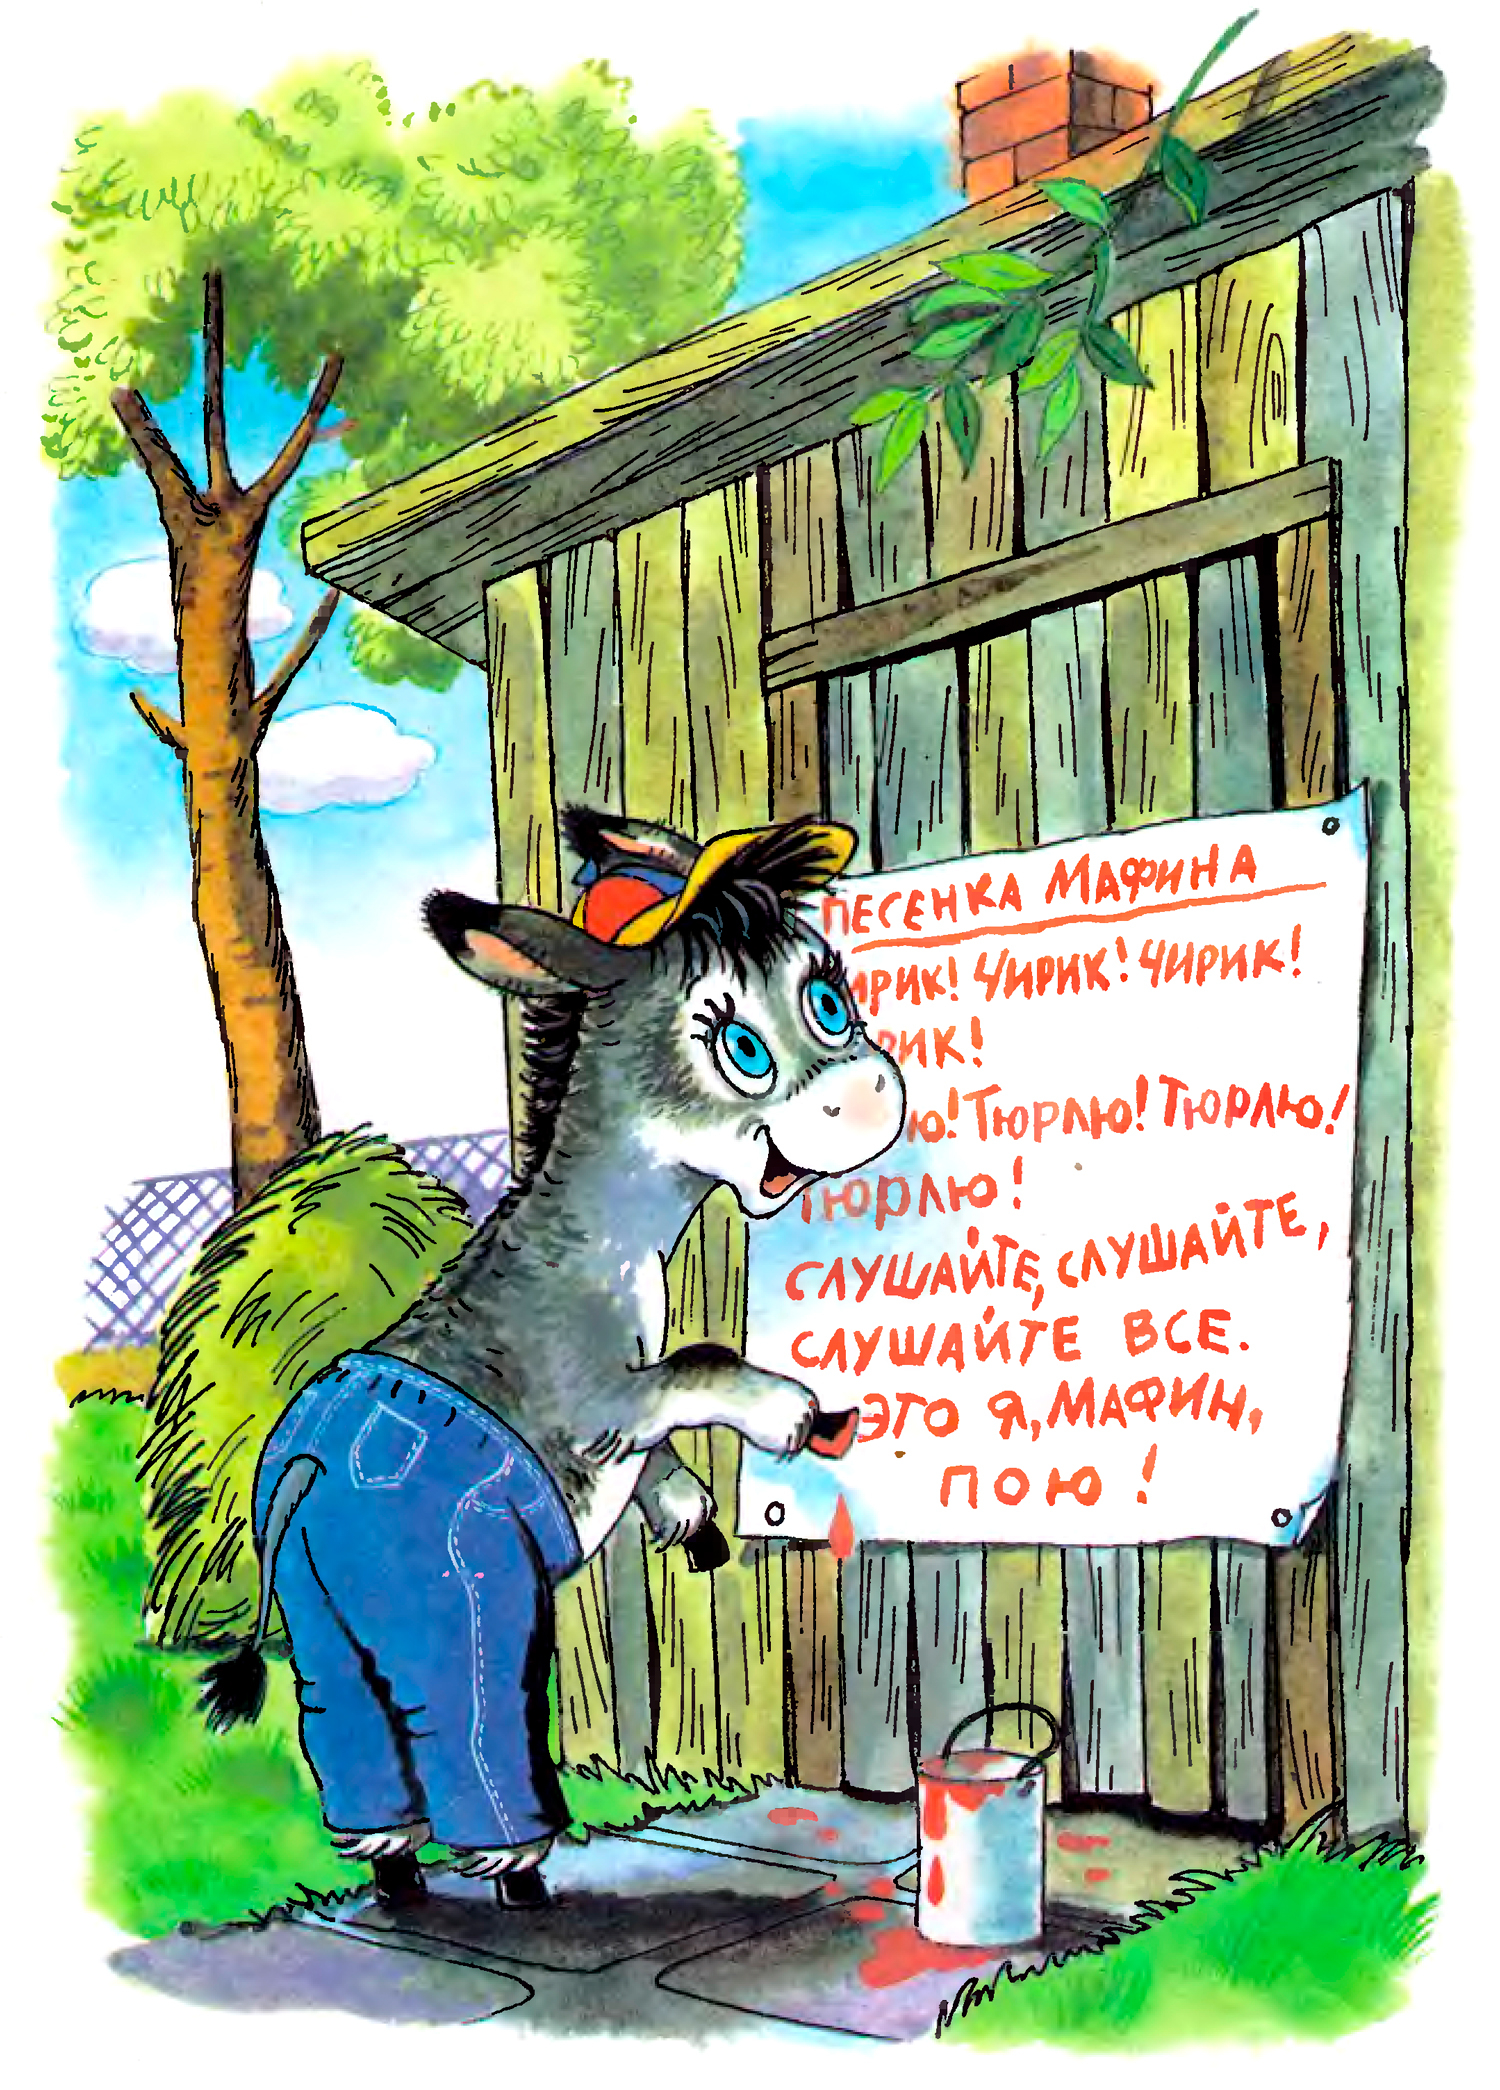 ПЕСЕНКА МАФИНА
ИРИК! ЧИРИК! ЧИРИК!
РИК!
Ю! ТЮРЛЮ! ТЮРЛЮ!
ТЮРЛЮ!
СЛУШАЙТЕ, СЛУШАЙТЕ,
СЛУШАЙТЕ ВСЕ.
ЭТО Я, МАФИН,
ПОЮ!